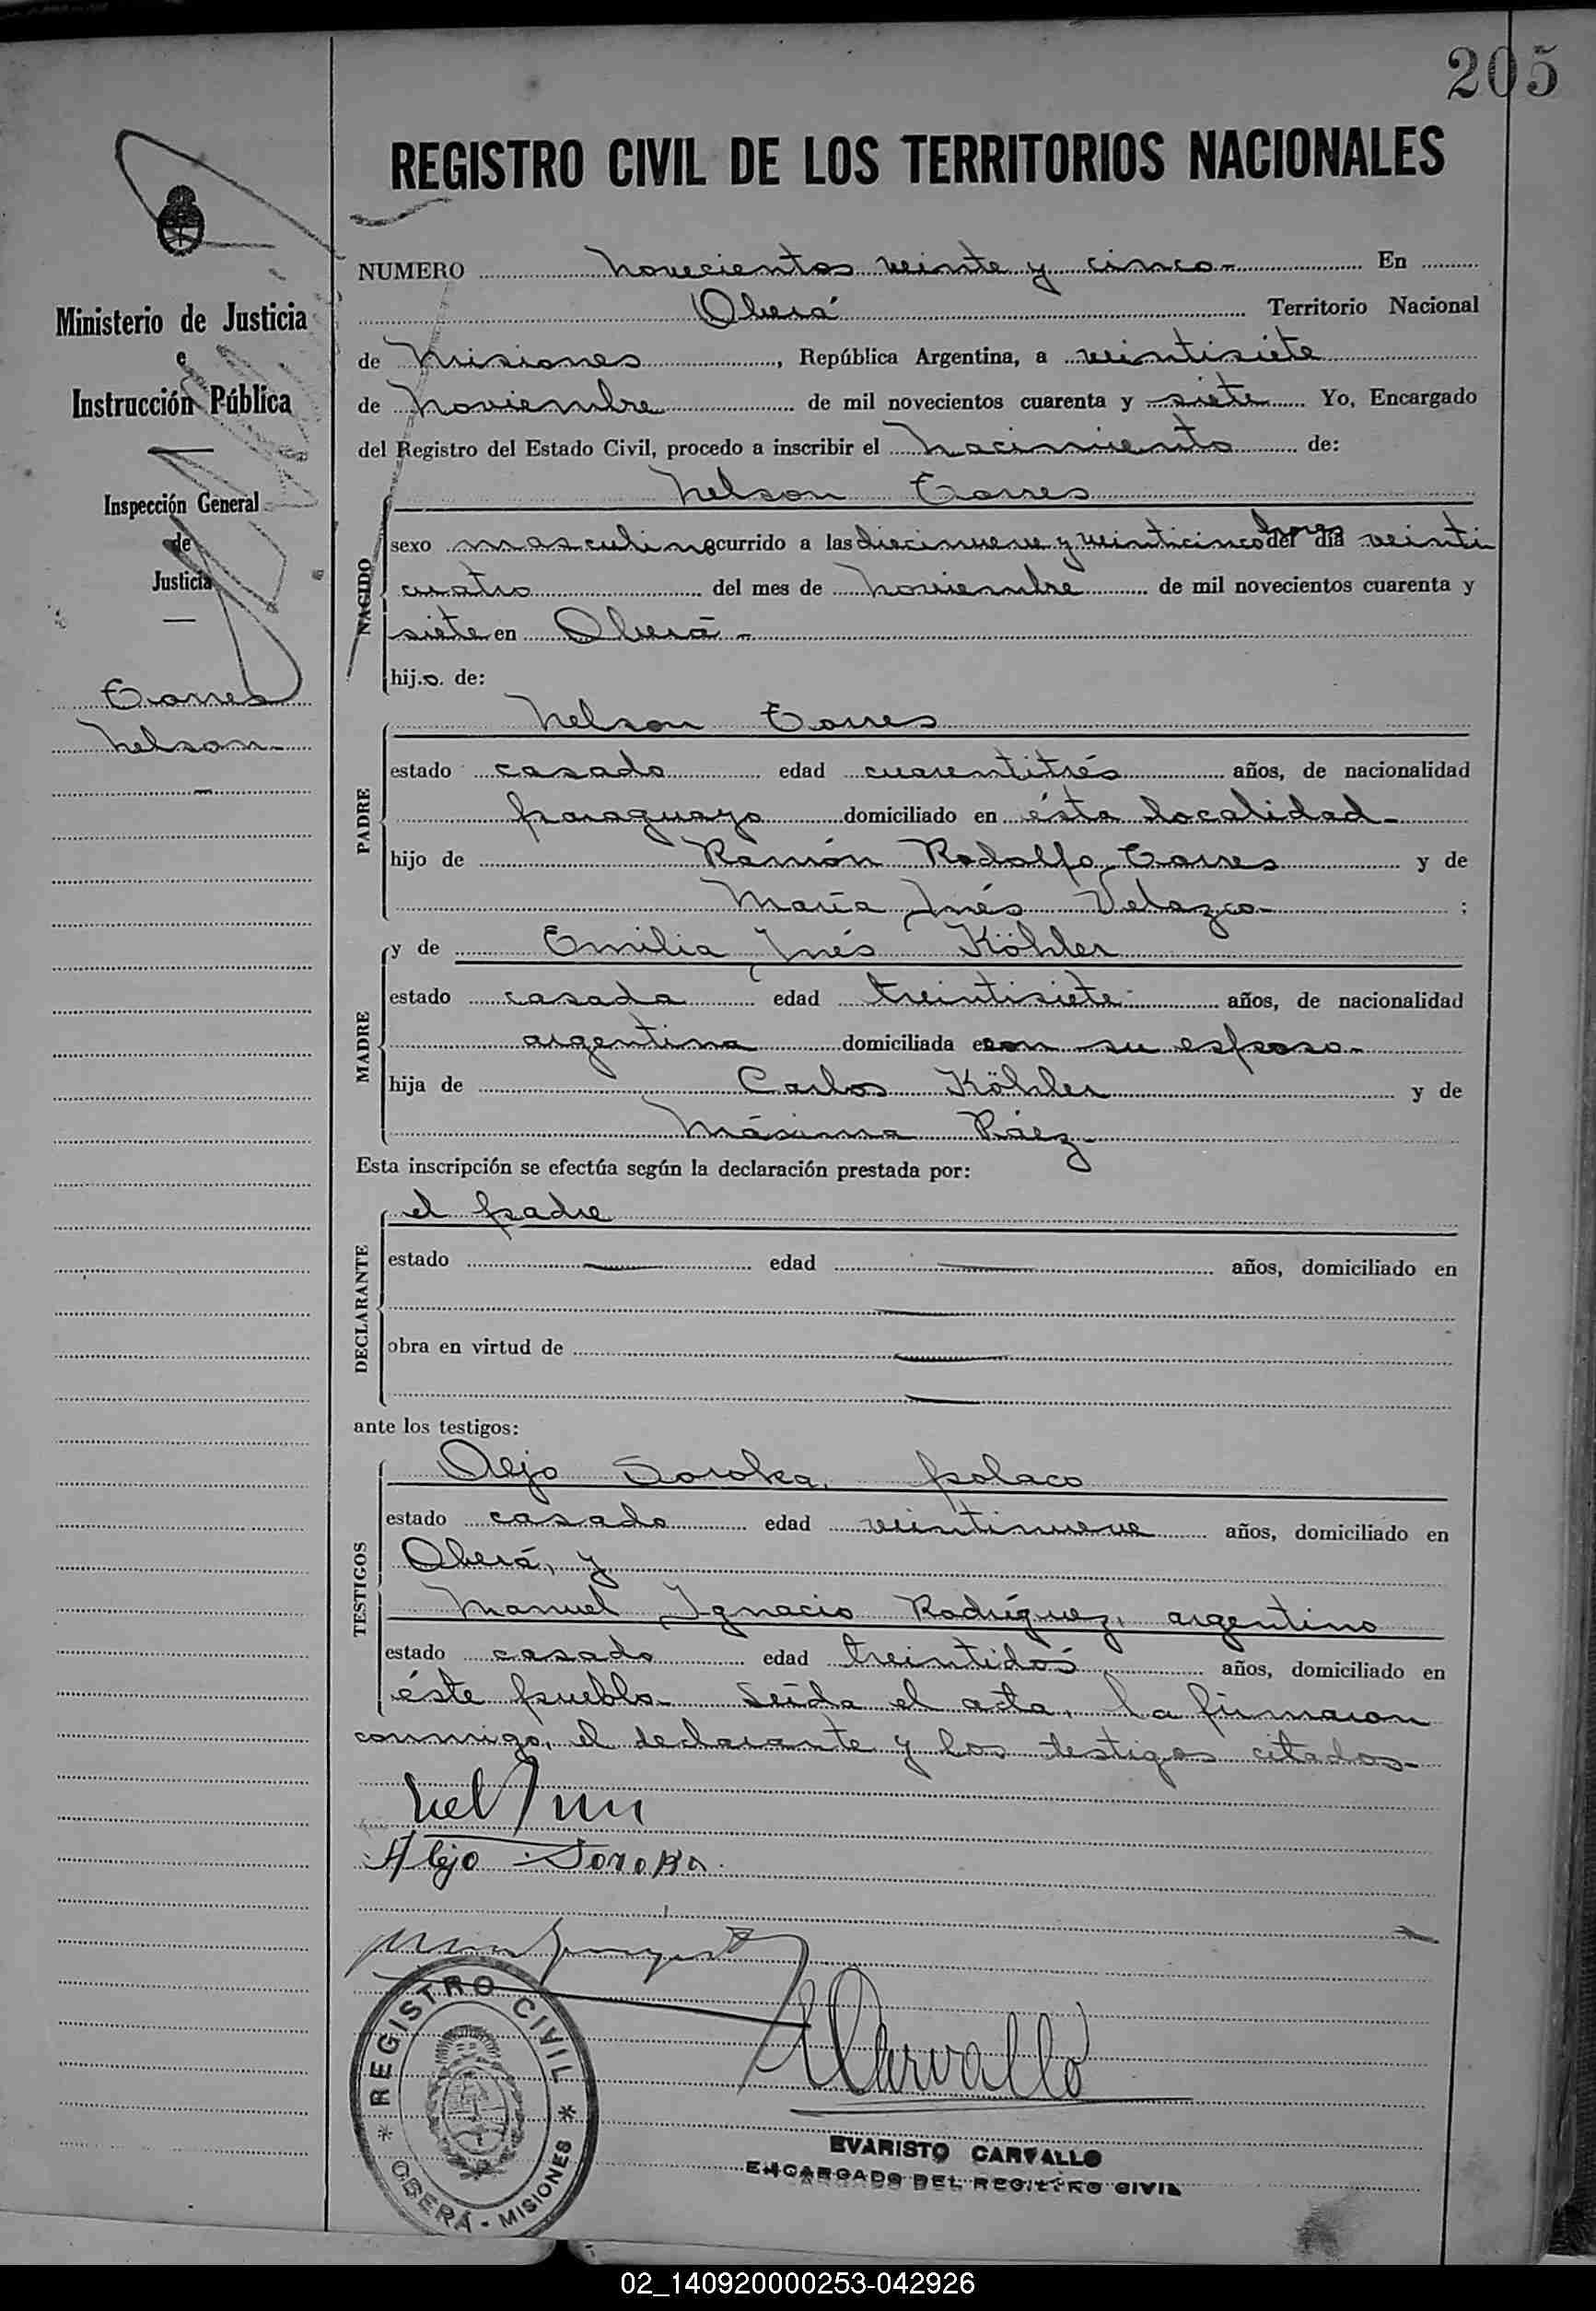 205
REGISTRO CIVIL DE LOS TERRITORIOS NACIONALES
Ministerio de Justicia
e
Instrucción Pública
Inspección General
de
Justicia
Torres
Nelson
NUMERO novecientos veinte y cinco.- En
Oberá Territorio Nacional
de Misiones, República Argentina, a veintisiete
de Noviembre de mil novecientos cuarenta y siete Yo, Encargado
del Registro del Estado Civil, procedo a inscribir el nacimiento de:
NACIDO
Nelson Torres
sexo masculino ocurrido a las diecinueve y veinticinco horas del día veinti
cuatro del mes de noviembre de mil novecientos cuarenta y
siete en Oberá.-
hijo de:
PADRE
Nelson Torres
estado casado edad cuarentitrés años, de nacionalidad
paraguayo domiciliado en ésta localidad.-
hijo de Ramón Rodolfo Torres y de
María Inés Velazco ;
MADRE
y de Emilia Inés Köhler
estado casada edad treintisiete años, de nacionalidad
argentina domiciliada con su esposo.-
hija de Carlos Köhler y de
Máxima Páez
Esta inscripción se efectúa según la declaración prestada por:
DECLARANTE
el padre
estado edad años, domiciliado en
obra en virtud de
ante los testigos:
TESTIGOS
Alejo Soroka, polaco
estado casado edad veintinueve años, domiciliado en
Oberá, y
Manuel Ignacio Rodríguez, argentino
estado casado edad treintidós años, domiciliado en
éste pueblo.- Leída el acta, la firmaron
conmigo, el declarante y los testigos citados.-
Alejo Soroka
Carvallo
REGISTRO CIVIL
OBERÁ - MISIONES
EVARISTO CARVALLO
ENCARGADO DEL REGISTRO CIVIL
02_140920000253-042926